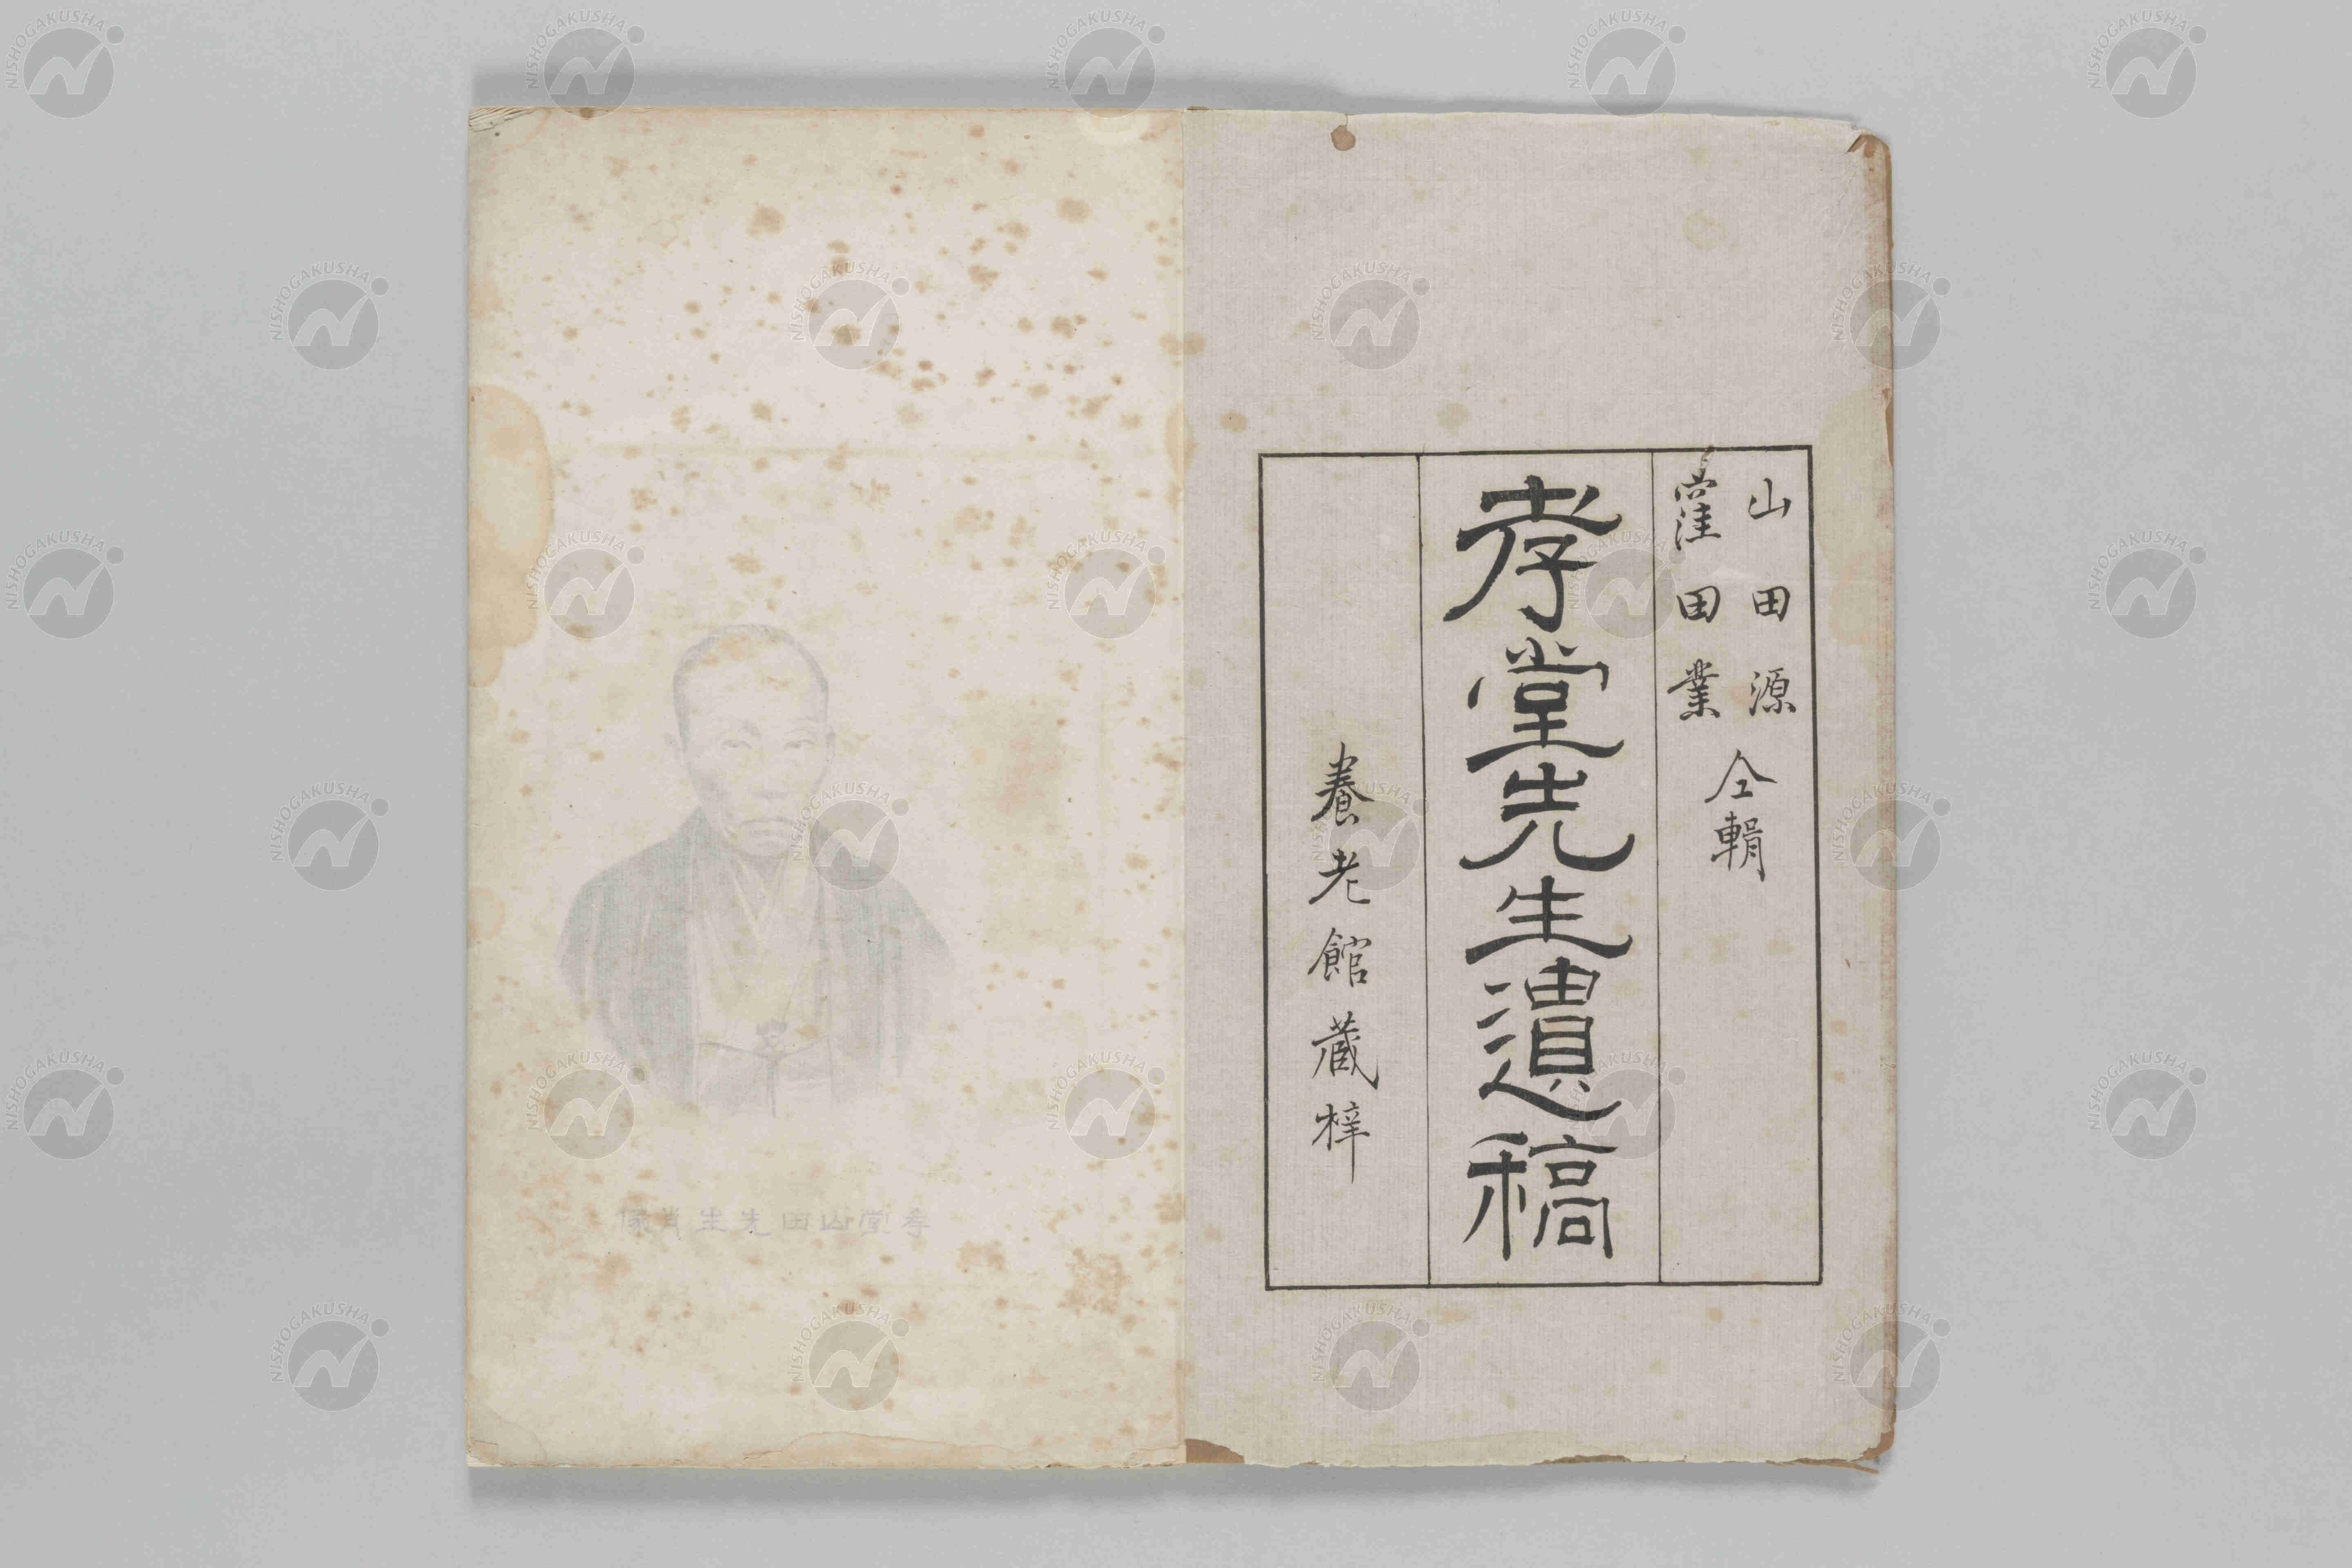 山田源
窪田業
仝輯
孝堂先生遺稿
養老館藏梓
孝堂山田先生肖像
NISHOGAKUSHA